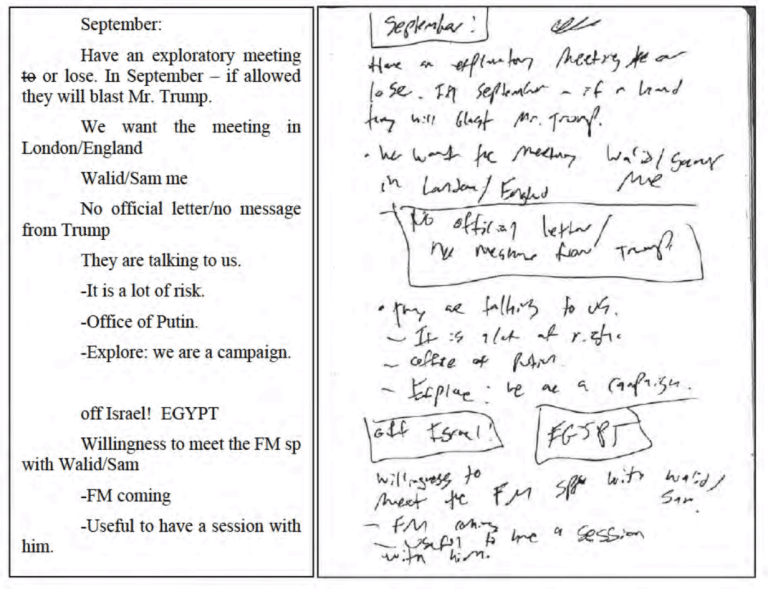 September:
Have an exploratory meeting
to or lose. In September – if allowed
they will blast Mr. Trump.
We want the meeting in
London/England
Walid/Sam me
No official letter/no message
from Trump
They are talking to us.
-It is a lot of risk.
-Office of Putin.
-Explore: we are a campaign.
off Israel! EGYPT
Willingness to meet the FM sp
with Walid/Sam
-FM coming
-Useful to have a session with
him.
September:
Have an exploratory meeting to or
lose. In September – if allowed
they will blast Mr. Trump.
• We want the meeting Walid/Sam
in London/England me
No official letter/
no message from Trump
• They are talking to us.
– It is a lot of risk.
– Office of Putin.
– Explore: we are a campaign.
off Israel! EGYPT
Willingness to
meet the FM sp with Walid/
Sam
– FM coming
– Useful to have a session
with him.